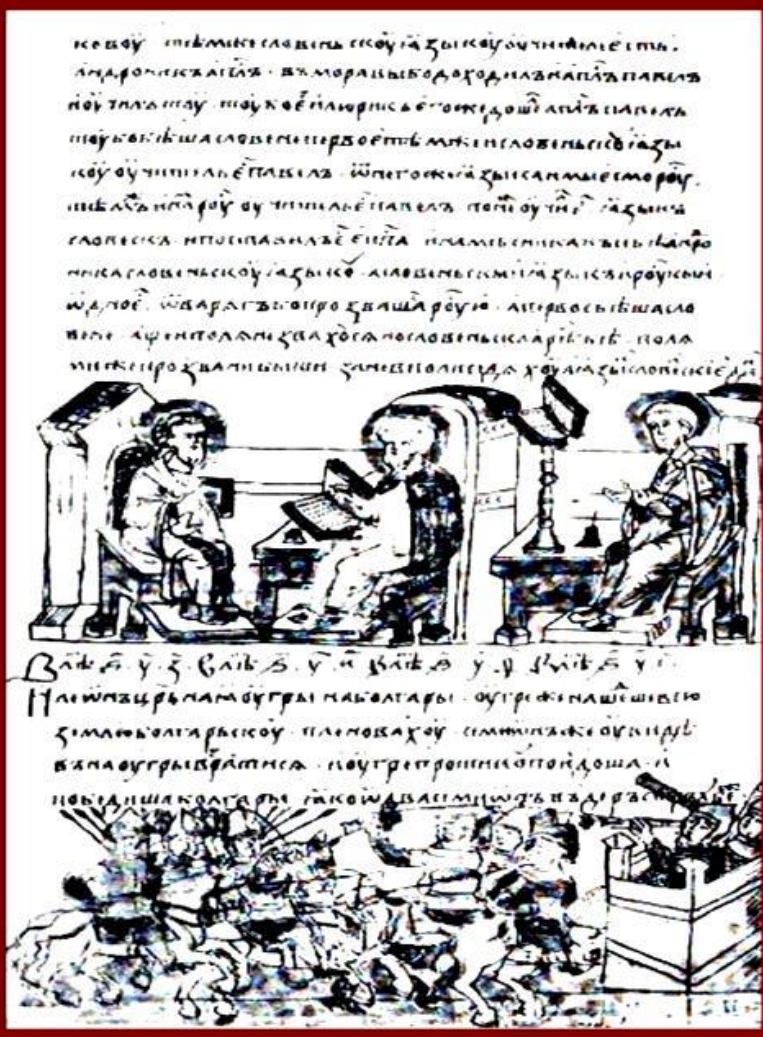 ковоу тѣмже словеньскоу ꙗзыкоу оучитель есть.
андроникъ апⷭ҇лъ · въ моравы бо доходилъ и апⷭ҇лъ павелъ
и оучилъ тоу · тоу бо е илюрикъ егоже дошеⷧ апⷭ҇лъ павелъ
тоу бо бѣша словени первое тѣмже и словеньскоⷨ ꙗзы
коу оучитель е павелъ · ѿ негоже ꙗзыка и мы есмо роуⷭ
тѣмъ и роуⷭ оучитель е павелъ понеⷤ оучиⷧ ꙗзыкъ
словескъ и поставилъ е еппⷭ҇а и намѣсника андро
ника словеньскоу ꙗзыкоу · а словеньскыи ꙗзыкъ и роукыи
ѡдно е · ѿ варягъ бо прозвашаⷭ роусю · а первое бѣша сло
вене · аще и поляне звахоуся но словеньскаа рѣⷱ бѣ · поля
ми же прозвани быши зане в поли сѣдяхоу ꙗзыⷦ словенскіи
В лѣⷮ ѕ · у · з · В лѣⷮ ѕ · у · и В лѣⷮ ѕ у · ѳ В лѣⷮ ѕ у і ·
И леѡнъ црь наꙗ оугры на болгары · оугре же нашеⷣше всю
землю болгарьскоу · пленовахоу · симиѡнъ же оувидѣ
въ на оугры вратися · и оугре противоу поидоша · и
побѣдиша болгары ꙗко ѡдва симиѡнъ въ деръстръ